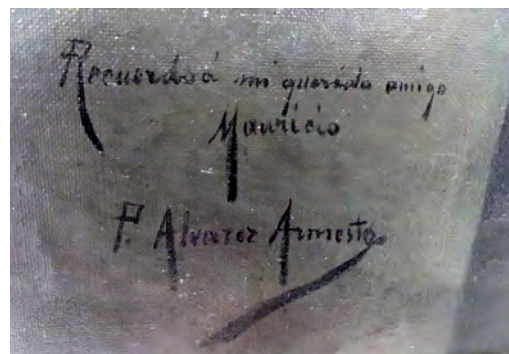 Recuerdo á mi querido amigo
Mauricio
P. Alvarez Armesto